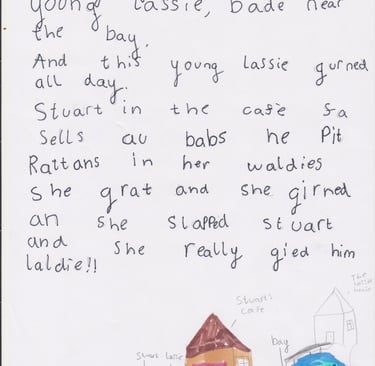 young lassie, bade near
the bay.
And this young lassie gurned
all day.
Stuart in the cafè fa
Sells au babs he Pit
Rattans in her waldies
She grat and she girned
an she slapped stuart
and she really gied him
laldie!!
Stuarts
cafe
The
lassie
house
Stuart lassie
bay